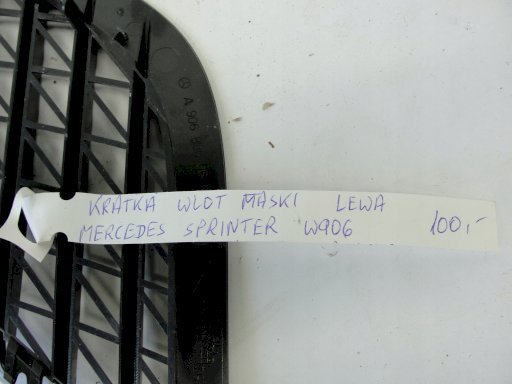 A 906
KRATKA WLOT MASKI LEWA
MERCEDES SPRINTER W906 100,-